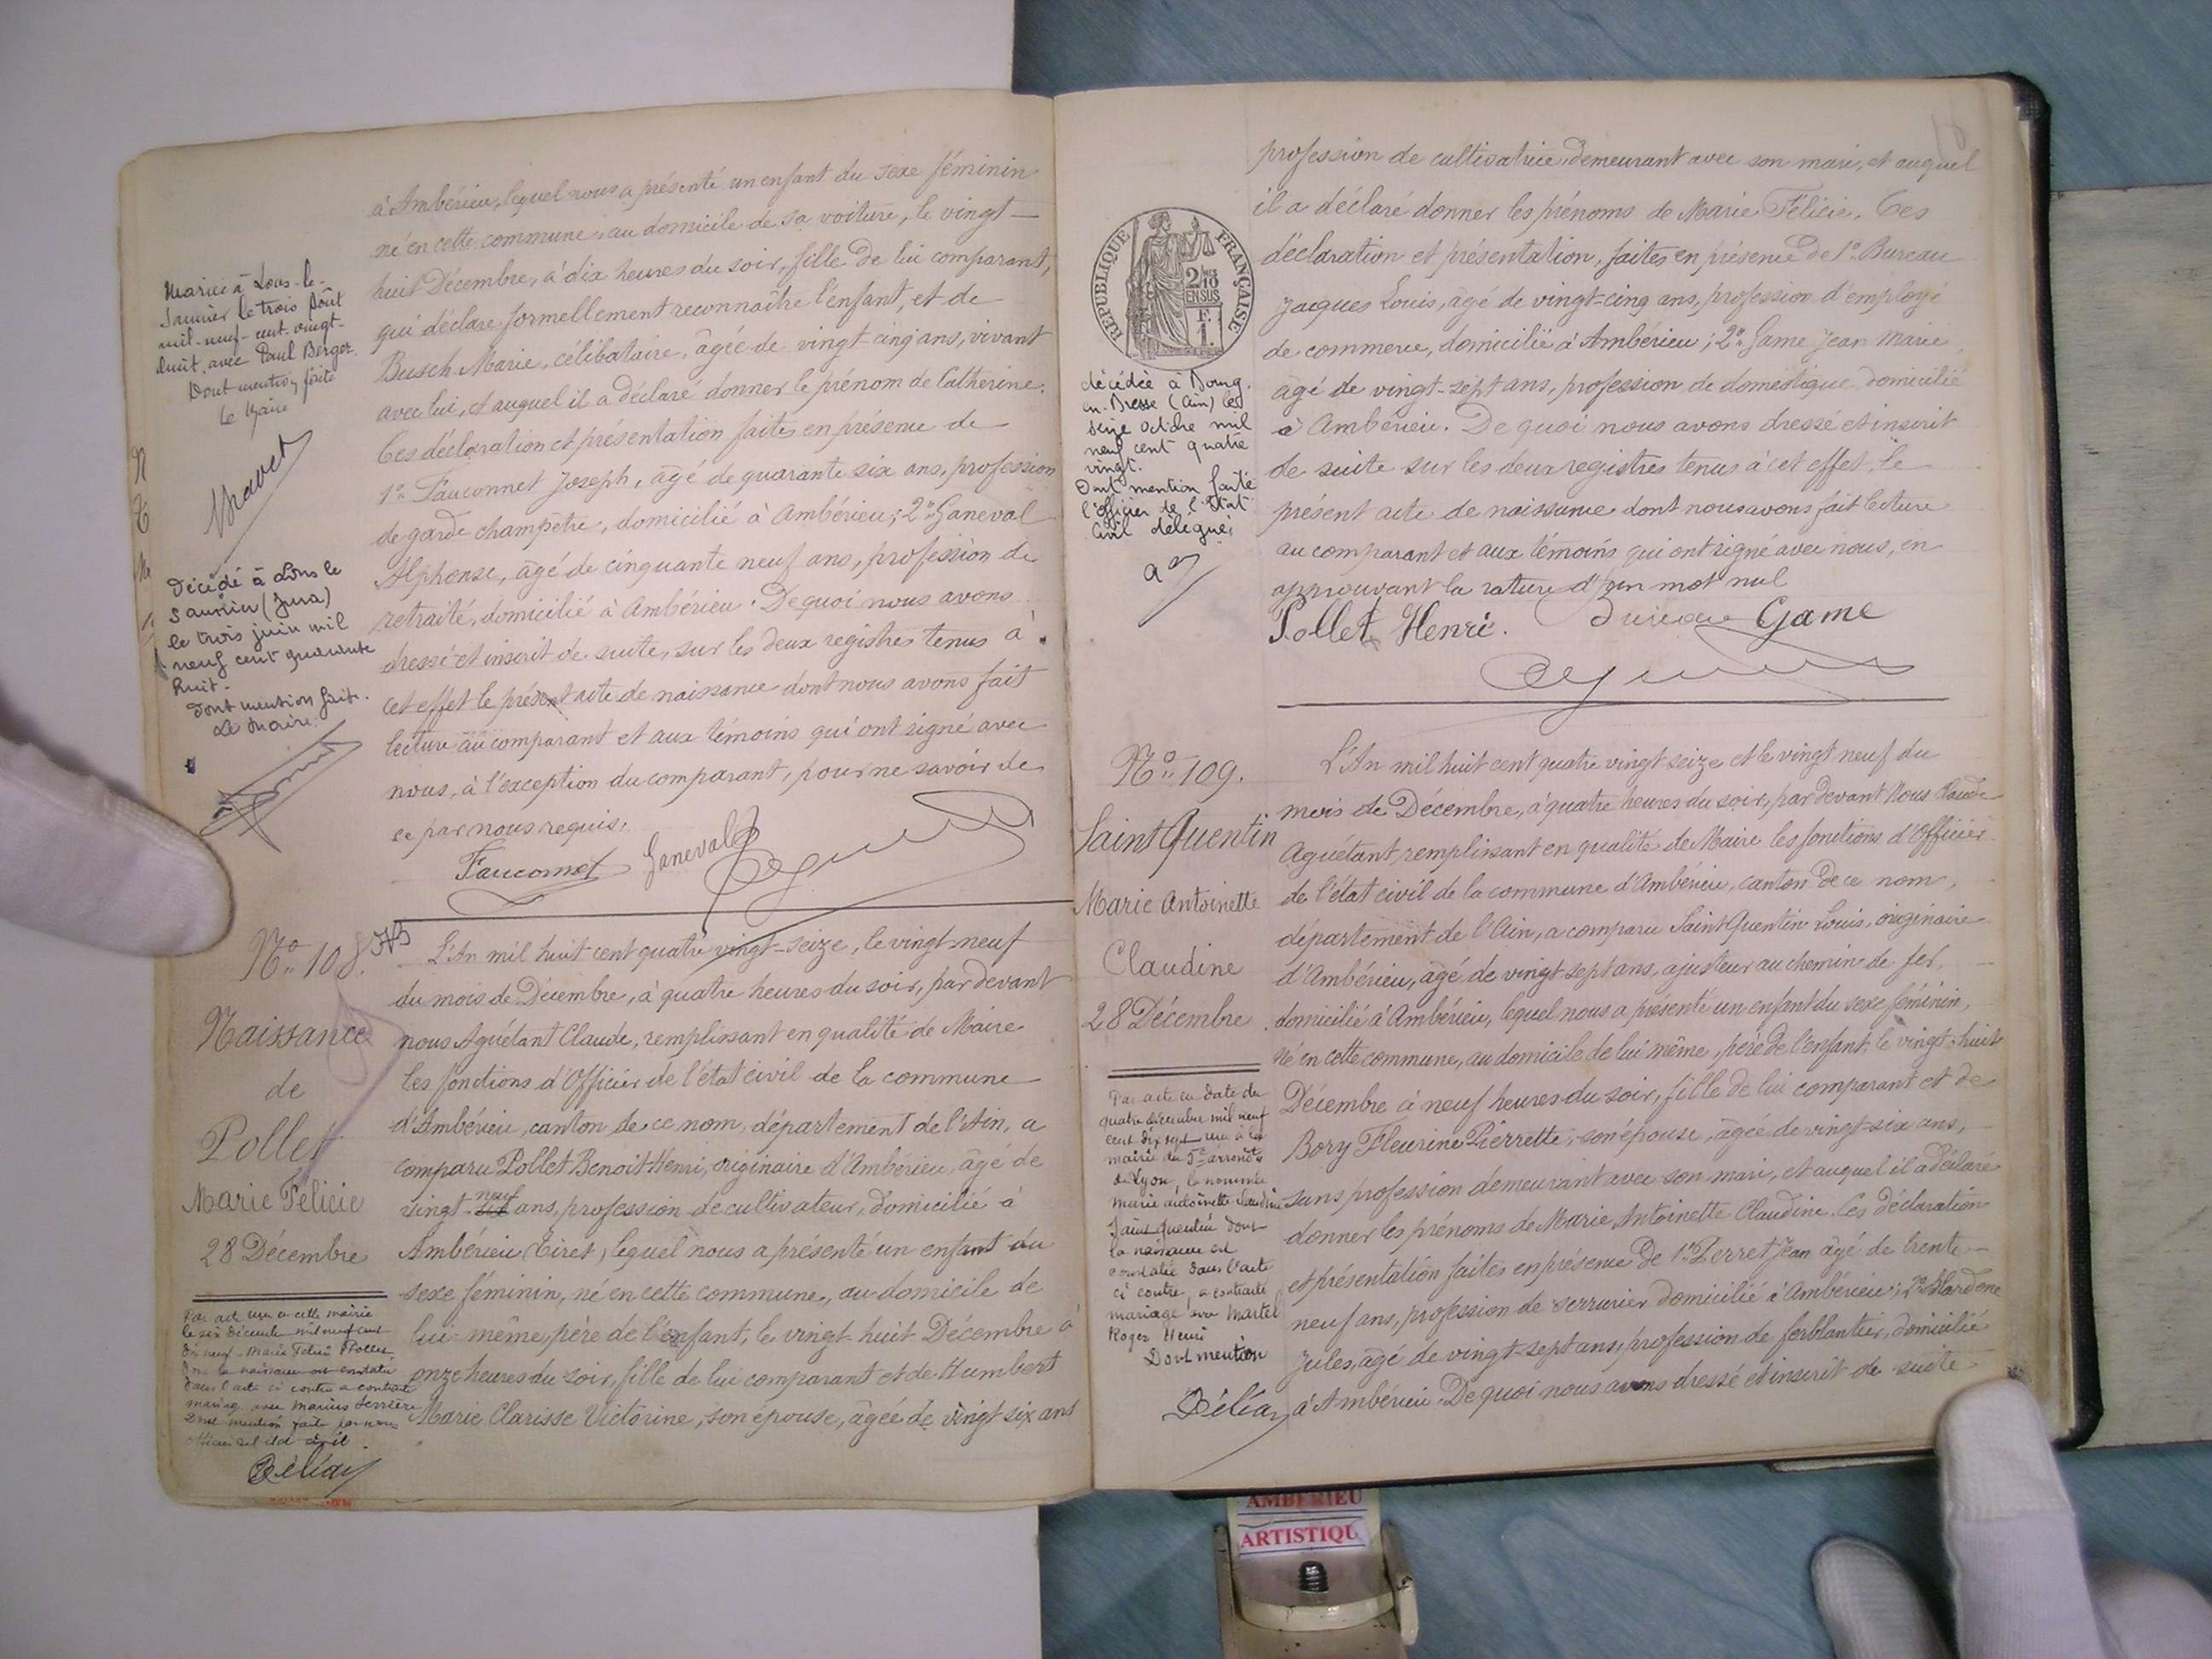 à Ambérieu, lequel nous a présenté un enfant du sexe féminin
né en cette commune, au domicile de sa voiture, le vingt
huit Décembre, à dix heures du soir, fille de lui comparant,
qui déclare formellement reconnaître l'enfant, et de
Busch Marie, célibataire, âgée de vingt cinq ans, vivant
avec lui, et auquel il a déclaré donner le prénom de Catherine.
Ces déclaration et présentation faites en présence de
1° Fauconnet Joseph, âgé de quarante six ans, profession
de garde champêtre, domicilié à Ambérieu; 2° Ganeval
Alphonse, âgé de cinquante neuf ans, profession de
retraité, domicilié à Ambérieu. De quoi nous avons
dressé et inscrit de suite, sur les deux registres tenus à
cet effet le présent acte de naissance dont nous avons fait
lecture au comparant et aux témoins qui ont signé avec
nous, à l'exception du comparant, pour ne savoir de
ce par nous requis.
Fauconnet Ganeval
Mariée à Lons-le-
Saunier le trois Août
mil-neuf-cent-vingt-
huit, avec Paul Berger.
Dont mention faite
Le Maire
Décédé à Lons le
Saunier (Jura)
le trois juin mil
neuf cent quarante
huit.
Dont mention faite.
Le Maire.
N° 108.
Naissance
de
Pollet
Marie Félicie
28 Décembre
Par acte en cette mairie
le six décembre mil neuf cent
dix neuf Marie Félicie Pollet
dont la naissance est constatée
dans l'acte ci contre a contracté
mariage avec Marius Serrière
Dont mention faite par nous
Officier de l'état civil.
L'An mil huit cent quatre vingt-seize, le vingt neuf
du mois de Décembre, à quatre heures du soir, par devant
nous Aguétant Claude, remplissant en qualité de Maire
les fonctions d'Officier de l'état civil de la commune
d'Ambérieu, canton de ce nom, département de l'Ain, a
comparu Pollet Benoit Henri, originaire d'Ambérieu, âgé de
vingt-neuf ans, profession de cultivateur, domicilié à
Ambérieu (Tiret), lequel nous a présenté un enfant du
sexe féminin, né en cette commune, au domicile de
lui-même, père de l'enfant, le vingt-huit Décembre à
onze heures du soir, fille de lui comparant et de Humbert
Marie Clarisse Victorine, son épouse, âgée de vingt six ans
profession de cultivatrice demeurant avec son mari, et auquel
il a déclaré donner les prénoms de Marie Félicie. Ces
déclaration et présentation, faites en présence de 1° Bureau
Jacques Louis, âgé de vingt-cinq ans, profession d'employé
de commerce, domicilié à Ambérieu; 2° Game Jean Marie,
âgé de vingt-sept ans, profession de domestique domicilié
à Ambérieu. De quoi nous avons dressé et inscrit
de suite sur les deux registres tenus à cet effet, le
présent acte de naissance dont nous avons fait lecture
au comparant et aux témoins qui ont signé avec nous, en
approuvant la rature d'un mot nul
Pollet Henri. Bureau Game
REPUBLIQUE FRANÇAISE
décédée à Bourg-
en-Bresse (Ain) le
seize octobre mil
neuf cent quatre
vingt.
Dont mention faite
l'officier de l'Etat
Civil délégué,
N° 109.
Saint Quentin
Marie Antoinette
Claudine
28 Décembre
Par acte en date du
quatre décembre mil neuf
cent dix sept à la
mairie du 5e arrondt
de Lyon, la nommée
Marie Antoinette Claudine
Saint Quentin dont
la naissance est
constatée dans l'acte
ci contre, a contracté
mariage avec Martel
Roger Henri
Dont mention
L'An mil huit cent quatre vingt seize et le vingt neuf du
mois de Décembre, à quatre heures du soir, par devant Nous Claude
Aguétant, remplissant en qualité de Maire les fonctions d'Officier
de l'état civil de la commune d'Ambérieu, canton de ce nom,
département de l'Ain, a comparu Saint Quentin Louis, originaire
d'Ambérieu, âgé de vingt sept ans, ajusteur au chemin de fer,
domicilié à Ambérieu, lequel nous a présenté un enfant du sexe féminin,
né en cette commune, au domicile de lui même, père de l'enfant, le vingt-huit
Décembre à neuf heures du soir, fille de lui comparant et de
Bory Fleurine Pierrette, son épouse, âgée de vingt-six ans,
sans profession demeurant avec son mari, et auquel il a déclaré
donner les prénoms de Marie Antoinette Claudine. Ces déclaration
et présentation faites en présence de 1° Perret Jean âgé de trente
neuf ans, profession de serrurier domicilié à Ambérieu; 2°
Jules, âgé de vingt-sept ans, profession de ferblantier, domicilié
à Ambérieu. De quoi nous avons dressé et inscrit de suite
AMBERIEU
ARTISTIQU